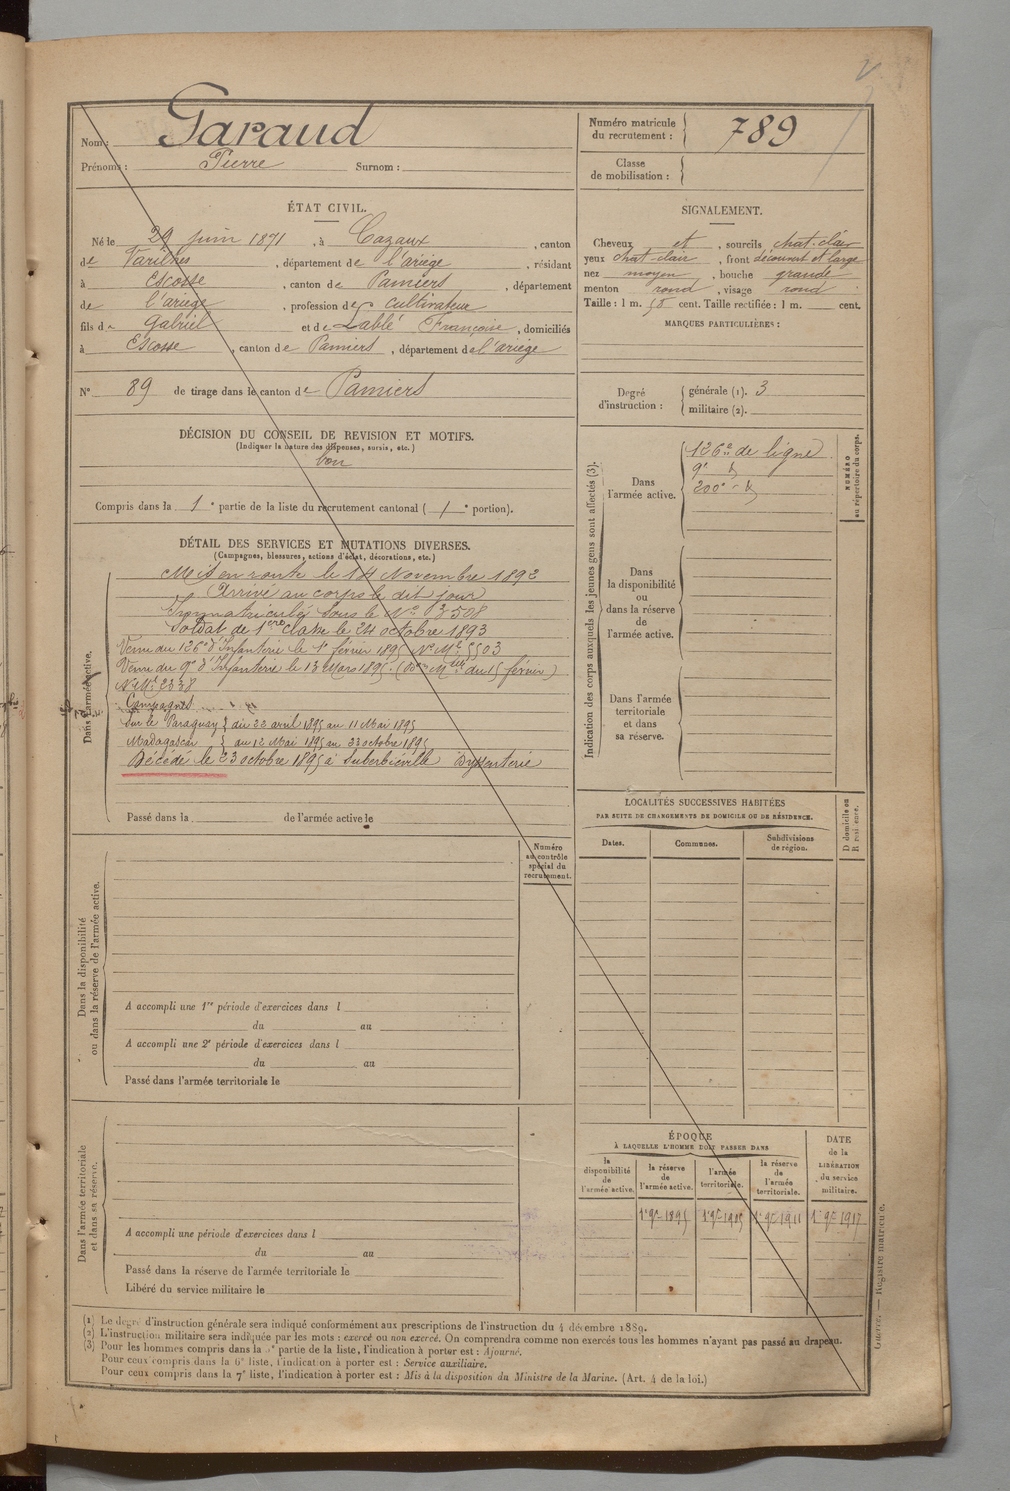 Nom : Garaud
Prénoms : Pierre Surnom :
Numéro matricule
du recrutement : 789
Classe
de mobilisation :
ÉTAT CIVIL.
Né le 29 juin 1871, à Cazaux, canton
de Varilhes, département de l'ariège, résidant
à Escosse, canton de Pamiers, département
de l'ariège, profession de cultivateur
fils de Gabriel et de Lablé Françoise, domiciliés
à Escosse, canton de Pamiers, département de l'ariège
N° 89 de tirage dans le canton de Pamiers
DÉCISION DU CONSEIL DE REVISION ET MOTIFS.
(Indiquer la nature des dispenses, sursis, etc.)
bon
Compris dans la 1e partie de la liste du recrutement cantonal (1e portion).
SIGNALEMENT.
Cheveux et, sourcils chat. clair
yeux chat. clair, front découvert et large
nez moyen, bouche grande
menton rond, visage rond
Taille : 1 m. 58 cent. Taille rectifiée : 1 m. cent.
MARQUES PARTICULIÈRES :
Degré
d'instruction :
générale (1). 3
militaire (2).
DÉTAIL DES SERVICES ET MUTATIONS DIVERSES.
(Campagnes, blessures, actions d'éclat, décorations, etc.)
Dans l'armée active.
Mis en route le 14 Novembre 1892
Arrivé au corps le dit jour
Immatriculé sous le N° 3508
Soldat de 1ere classe le 24 octobre 1893
Venu du 126e d'Infanterie le 1er février 1895 N° Mle 5503
Venu du 9e d'Infanterie le 13 Mars 1895. du 15 février)
N° Mle 2338
Campagnes
Sur le Paraguay } du 22 avril 1895 au 11 Mai 1895
Madagascar } du 12 Mai 1895 au 23 octobre 1895
Décédé le 23 octobre 1895 à Suberbieville Dysenterie
Passé dans la de l'armée active le
Indication des corps auxquels les jeunes gens sont affectés (3).
Dans
l'armée active.
126e de ligne
9e
200e
NUMÉRO
au répertoire du corps.
Dans
la disponibilité
ou
dans la réserve
de
l'armée active.
Dans l'armée
territoriale
et dans
sa réserve.
LOCALITÉS SUCCESSIVES HABITÉES
PAR SUITE DE CHANGEMENTS DE DOMICILE OU DE RÉSIDENCE.
Dates. Communes. Subdivisions
de région.
D domicile ou
R résidence.
Numéro
au contrôle
spécial du
recrutement.
Dans la disponibilité
ou dans la réserve de l'armée active.
A accompli une 1re période d'exercices dans l
du au
A accompli une 2e période d'exercices dans l
du au
Passé dans l'armée territoriale le
Dans l'armée territoriale
et dans sa réserve.
A accompli une période d'exercices dans l
du au
Passé dans la réserve de l'armée territoriale le
Libéré du service militaire le
ÉPOQUE
À LAQUELLE L'HOMME DOIT PASSER DANS
la
disponibilité
de
l'armée active.
la réserve
de
l'armée active.
l'armée
territoriale.
la réserve
de
l'armée
territoriale.
DATE
de la
LIBÉRATION
du service
militaire.
1er 9e 1895 1er 9e 1905 1er 9e 1911 1er 9e 1917
(1) Le degré d'instruction générale sera indiqué conformément aux prescriptions de l'instruction du 4 décembre 1889.
(2) L'instruction militaire sera indiquée par les mots : exercé ou non exercé. On comprendra comme non exercés tous les hommes n'ayant pas passé au drapeau.
(3) Pour les hommes compris dans la 5e partie de la liste, l'indication à porter est : Ajourné.
Pour ceux compris dans la 6e liste, l'indication à porter est : Service auxiliaire.
Pour ceux compris dans la 7e liste, l'indication à porter est : Mis à la disposition du Ministre de la Marine. (Art. 4 de la loi.)
Guerre. — Registre matricule.